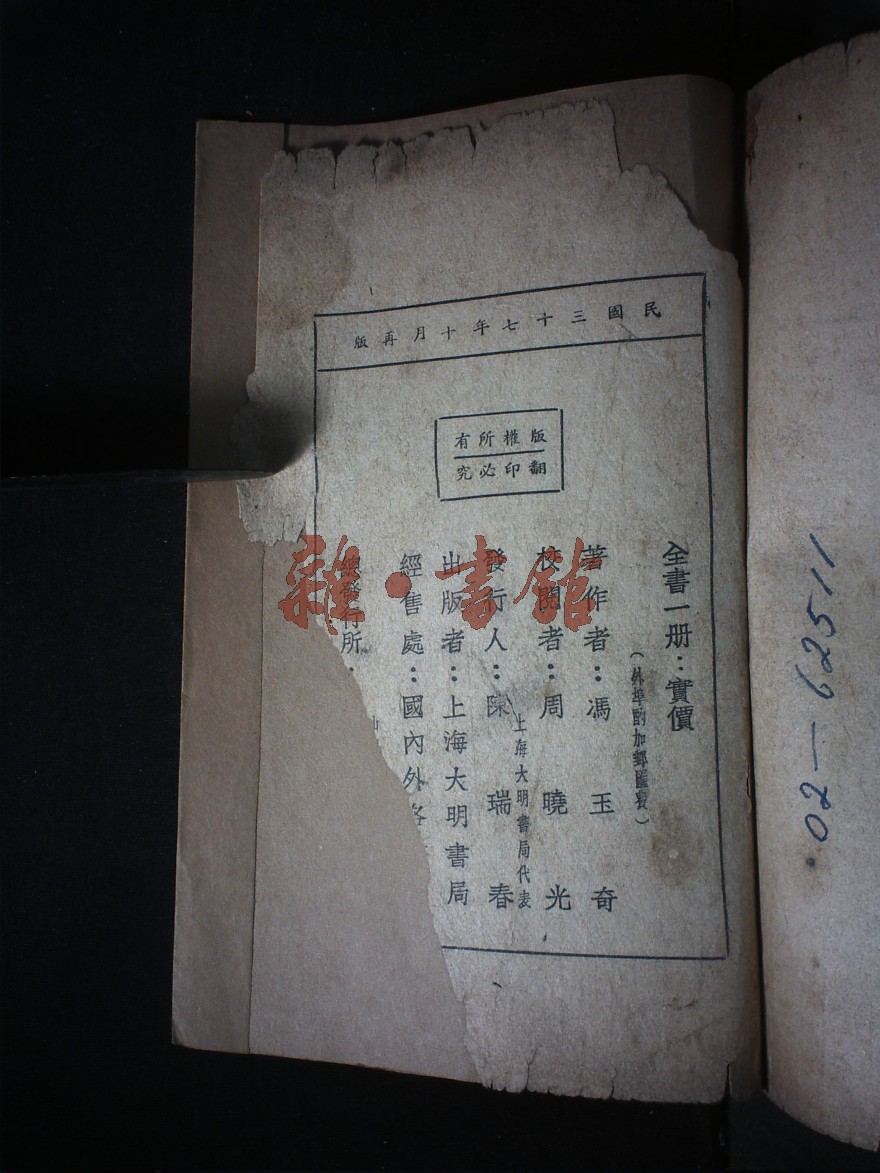 民國三十七年十月再版
版權所有
翻印必究
全書一册：實價
（外埠酌加郵匯費）
著作者：馮玉奇
校閱者：周曉光
上海大明書局代表
發行人：陳瑞春
出版者：上海大明書局
經售處：國內外各
總發行所：
雜·書館
02-62511